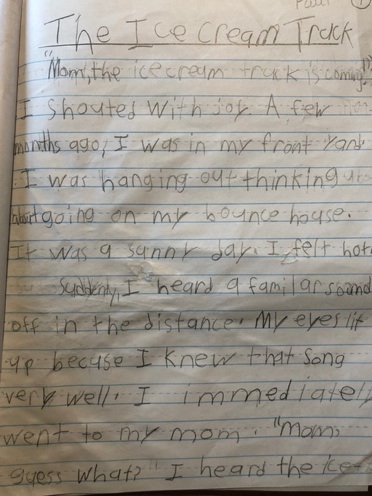 The Ice Cream Truck
"Mom, the ice cream truck is coming!"
I shouted with joy. A few
months ago, I was in my front yard
I was hanging out thinking
about going on my bounce house.
It was a sunny day. I felt hot.
Suddenly, I heard a familar sound
off in the distance. My eyes lit
up becuse I knew that song
very well. I immediately
went to my mom. "Mom,
guess what?" I heard the ice-